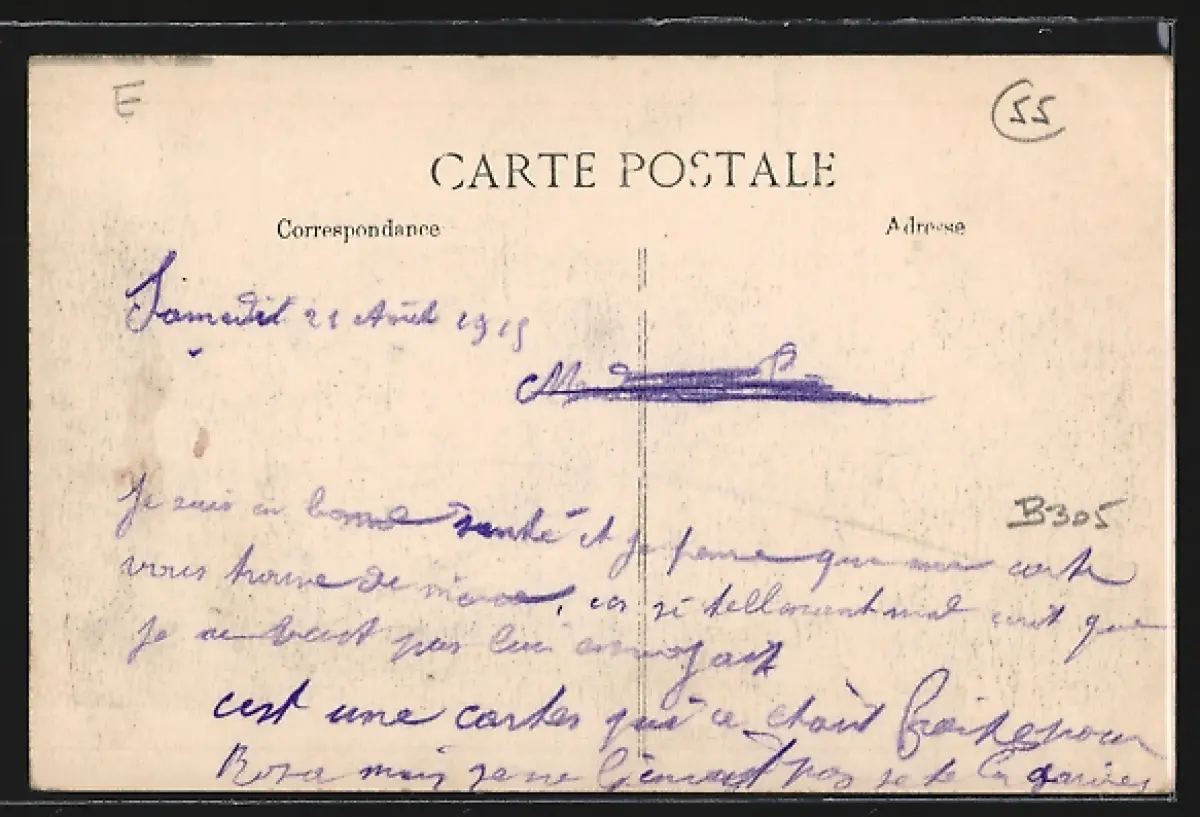 E
55
CARTE POSTALE
Correspondance
Adresse
Samedit 21 Août 1915
Je suis en bonne santé et je pense que ma carte
B305
vous trouve de même, si tellement mal écrit que
je ne pas lui
cest une cartes que étaït fraite pour
Rosa mais je ne pas je te la